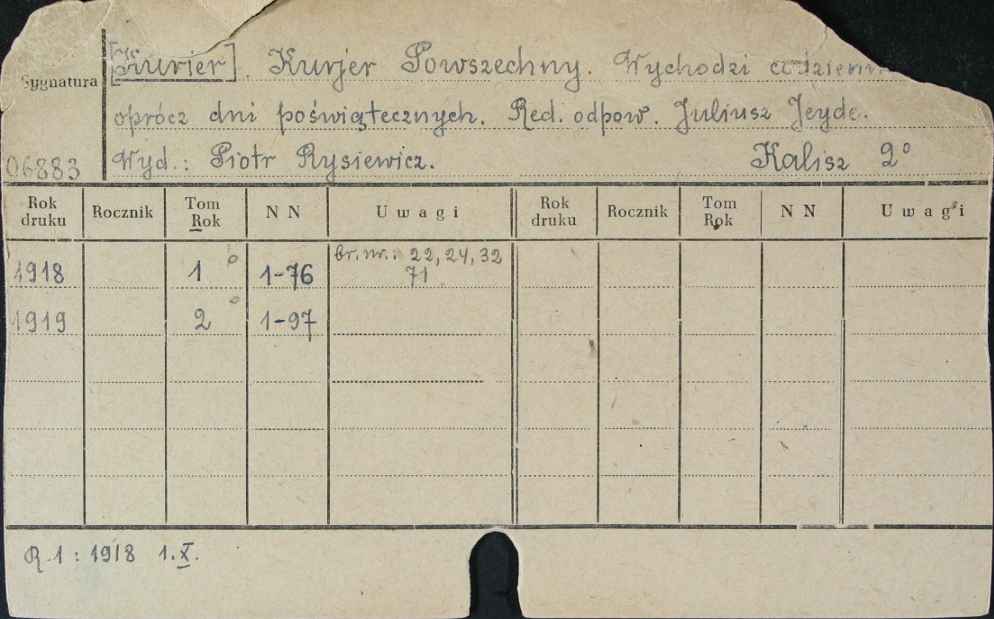 Sygnatura
[Kurier]. Kurjer Powszechny. Wychodzi codziennie
oprócz dni poświątecznych. Red. odpow. Juliusz Jeyde.
06883 Wyd.: Piotr Rysiewicz. Kalisz 2°
Rok druku Rocznik Tom Rok N N Uwagi Rok druku Rocznik Tom Rok N N Uwagi
1918 1 1-76 br. nr.: 22, 24, 32
71
1919 2 1-97
R.1: 1918 1.X.